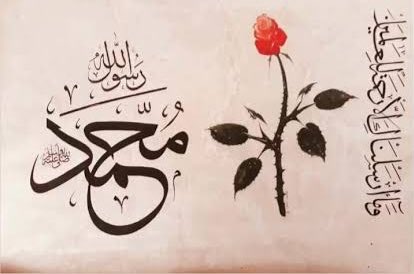 رسول الله
محمد
صلى الله عليه وسلم
وما أرسلناك إلا رحمة للعالمين